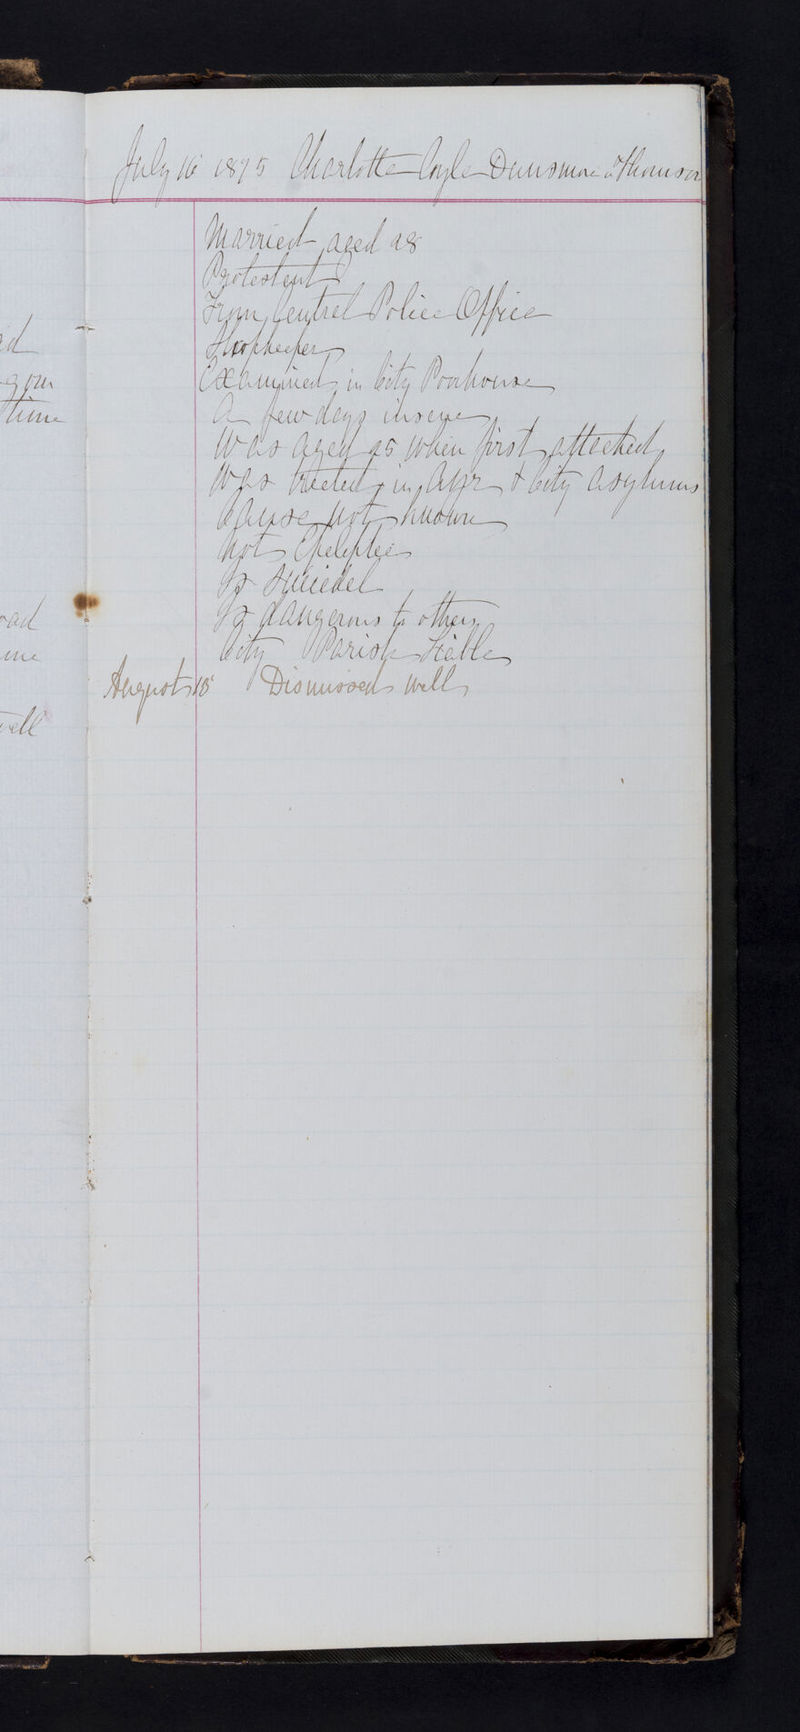 July 16 1875 Charlotte Coyle Dunsmore or Thomson
Married aged 28
Protestant
From Central Police Office
Shopkeeper
Examined in City Poorhouse
A few days insane
Was aged 25 when first attacked
Was treated in Ayr & City Asylums
Cause not known
Not Epileptic
Is suicidal
Is dangerous to others
City Parish liable
August 18 Dismissed well
ad
time
oad
well